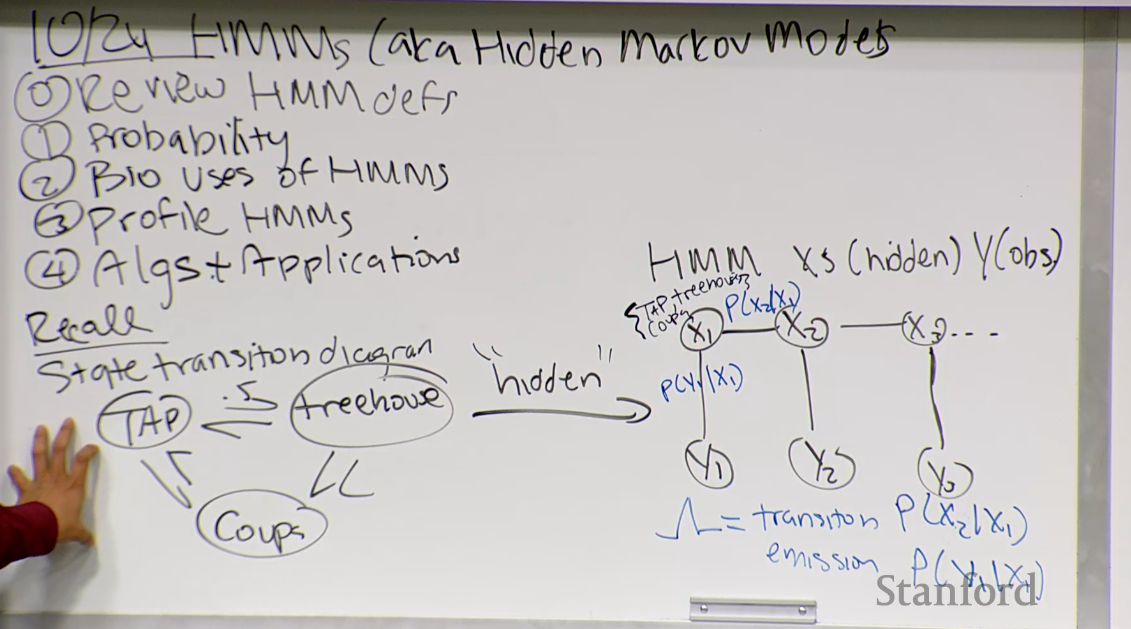 10/24 HMMs (aka Hidden Markov Models
⓪ Review HMM defs
① Probability
② Bio uses of HMMs
③ Profile HMMs
④ Algs + Applications
Recall
State transiton diagram
TAP .5 treehouse
Coups
"hidden"
HMM Xs (hidden) Y(obs)
{TAP, treehouse,
Coups
P(X₂|X₁)
X₁ X₂ X₃ ....
P(Y₁|X₁)
Y₁ Y₂ Y₃
Λ = transiton P(X₂|X₁)
emission P(Y₁|X₁)
Stanford